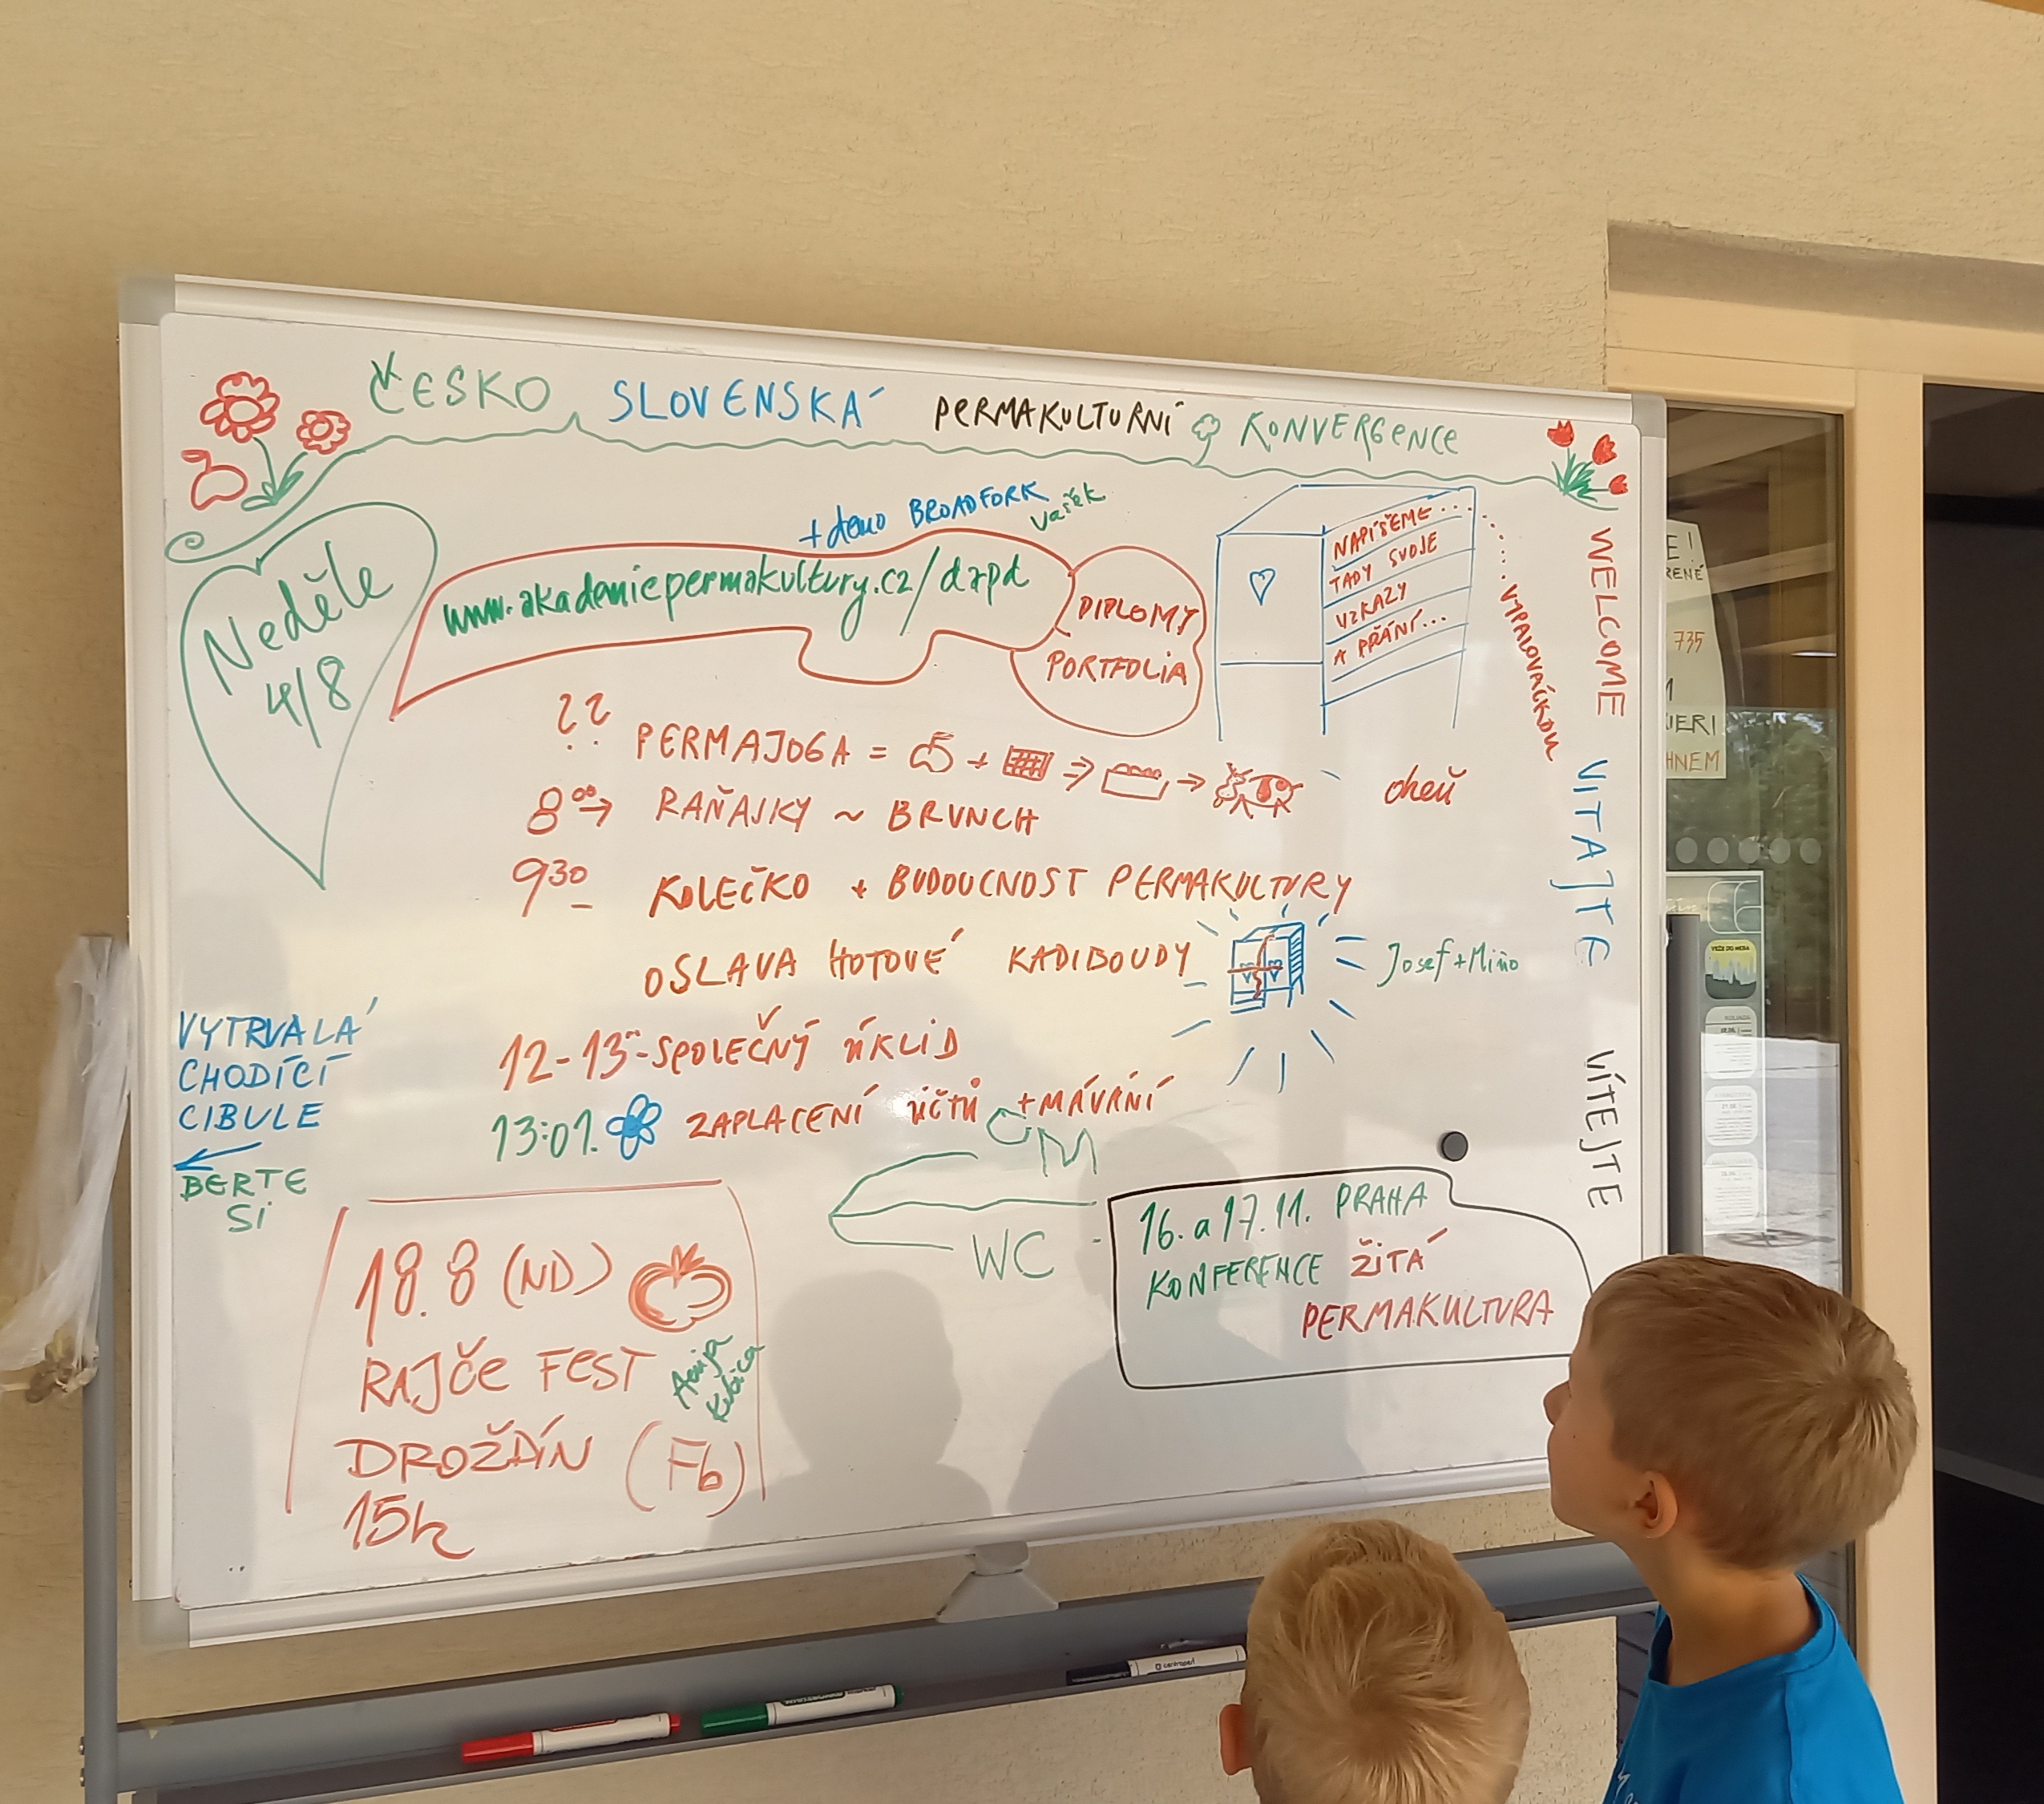 ČESKO SLOVENSKÁ PERMAKULTURNÍ KONVERGENCE
Neděle
4/8
+ demo BROADFORK
Vašek
www.akademiepermakultury.cz/dapd
DIPLOMY
PORTFOLIA
NAPÍŠEME...
TADY SVOJE
VZKAZY
A PŘÁNÍ...
VYPALOVAČKOU
WELCOME
VITAJTE
VÍTEJTE
??
PERMAJOGA = + ⇒ →
oheň
8⁰⁰→ RAŇAJKY ~ BRUNCH
9³⁰ KOLEČKO + BUDOUCNOST PERMAKULTURY
OSLAVA HOTOVÉ KADIBOUDY
Josef + Miňo
12-13-SPOLEČNÝ ÚKLID
13:01. ZAPLACENÍ ÚČTŮ + MÁVÁNÍ
VYTRVALÁ
CHODÍCÍ
CIBULE
BERTE
SI
WC
18.8 (ND)
RAJČE FEST
DROŽDÍN (Fb)
15h
16. a 17.11. PRAHA
KONFERENCE ŽITÁ
PERMAKULTURA
E!
735
IERI
HNEM
centropen